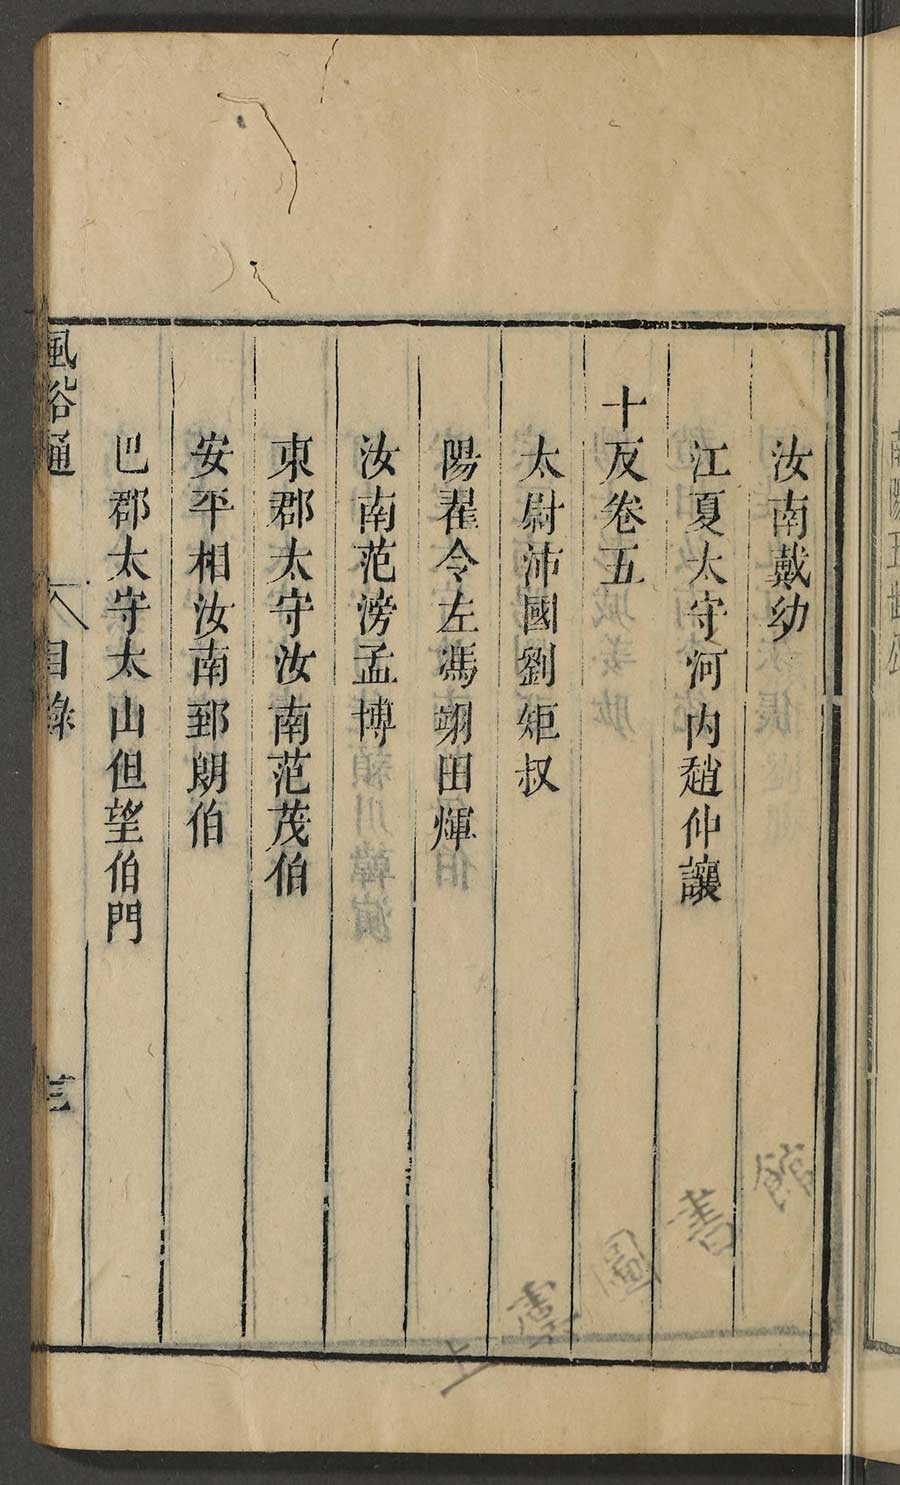 汝南戴幼
江夏太守河内趙仲讓
十反卷五
太尉沛國劉矩叔
陽翟令左馮翊田煇
汝南范滂孟博
東郡太守汝南范茂伯
安平相汝南郅朗伯
巴郡太守太山但望伯門
風俗通 目錄 三
上虞圖書館